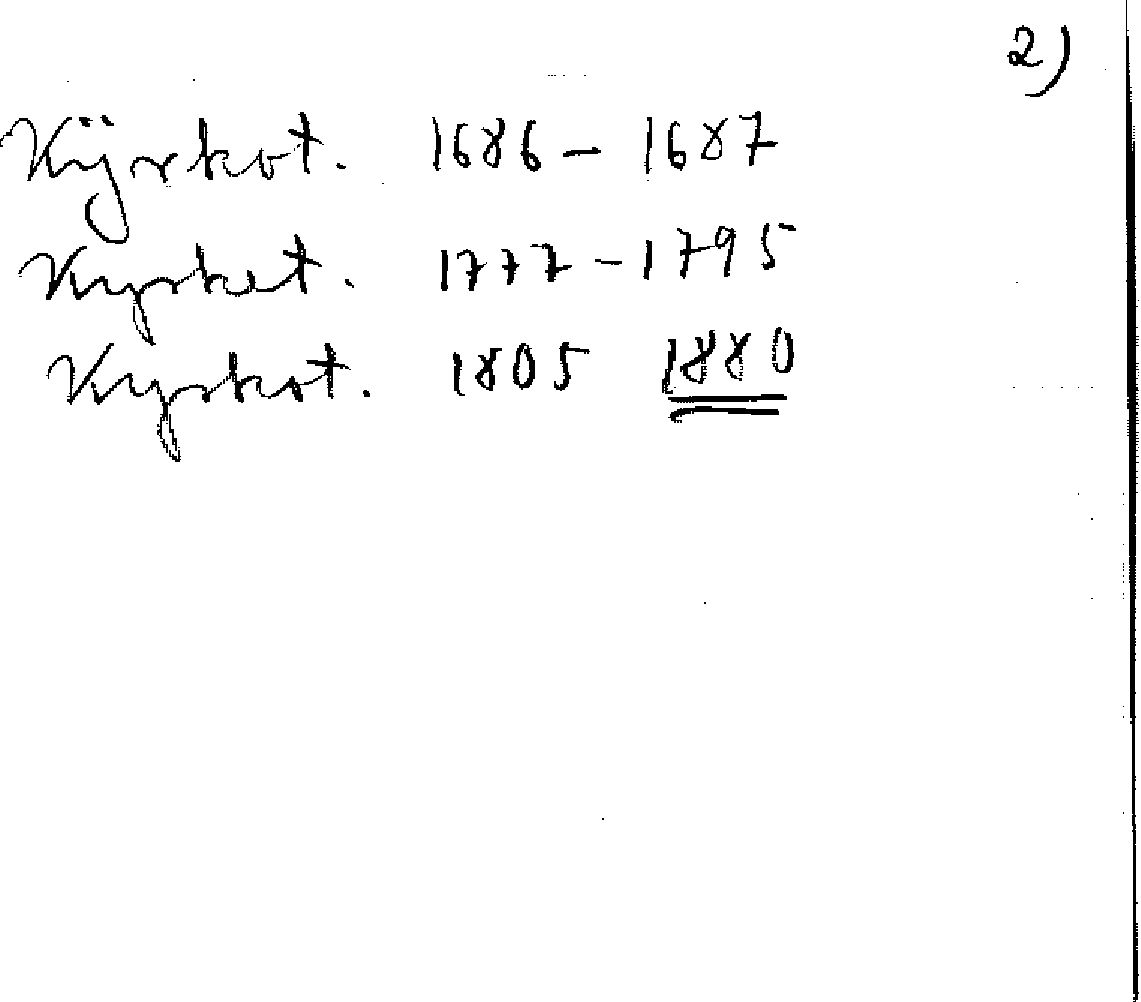 2)
Kÿrkot. 1686 – 1687
Kyrket. 1777 – 1795
Kyrkot. 1805 1880